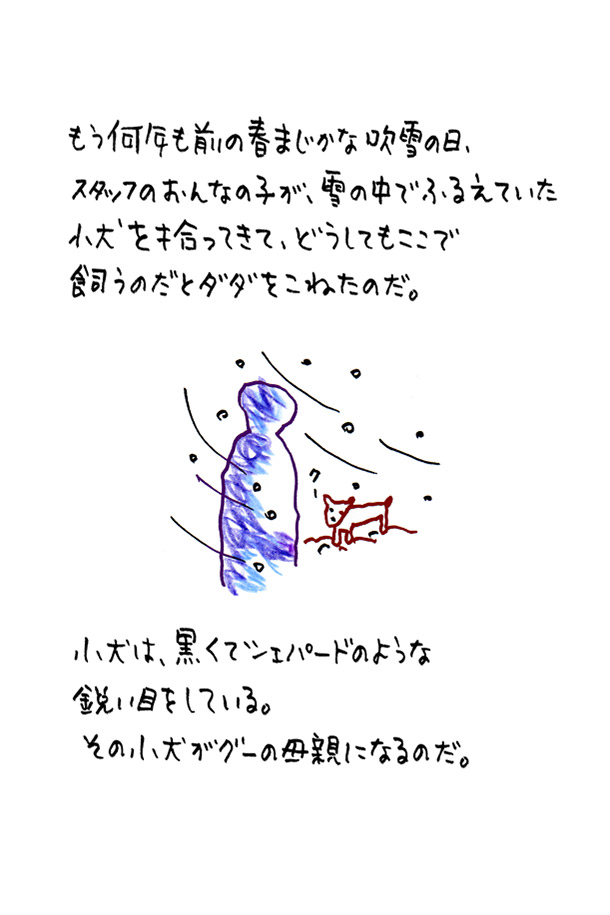 もう何年も前の春まじかな吹雪の日、
スタッフのおんなの子が、雪の中でふるえていた
小犬を拾ってきて、どうしてもここで
飼うのだとダダをこねたのだ。
ク
小犬は、黒くてシェパードのような
鋭い目をしている。
その小犬がグーの母親になるのだ。